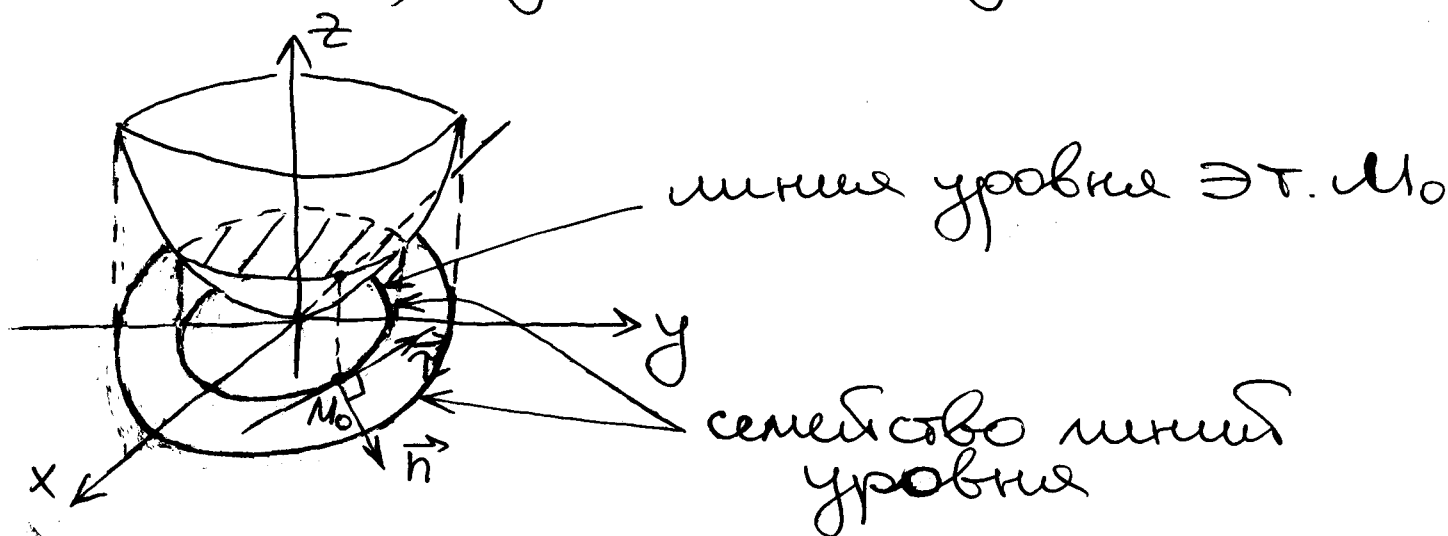 z
линия уровня ∋ т. M₀
y
M₀
n⃗
x
семейство линий
уровня